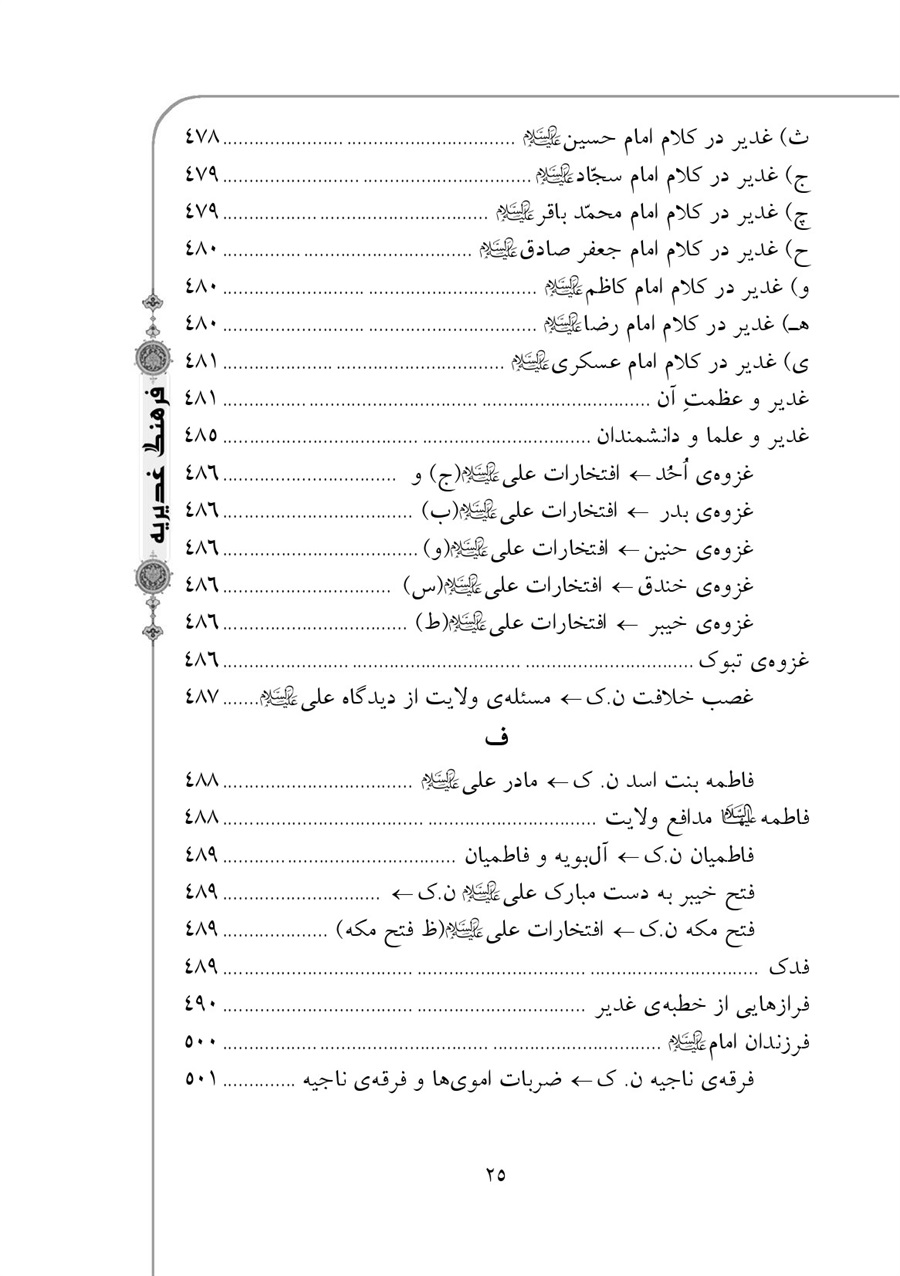 ث) غدیر در کلام امام حسین علیه‌السلام ................................ ....................... ٤٧٨
ج) غدیر در کلام امام سجّاد علیه‌السلام ................................ .......................... ٤٧٩
چ) غدیر در کلام امام محمّد باقر علیه‌السلام ................................ .................. ٤٧٩
ح) غدیر در کلام امام جعفر صادق علیه‌السلام ................................ ............... ٤٨٠
و) غدیر در کلام امام کاظم علیه‌السلام ................................ ........................... ٤٨٠
هـ) غدیر در کلام امام رضا علیه‌السلام ................................ ........................... ٤٨٠
ی) غدیر در کلام امام عسکری علیه‌السلام ................................ ..................... ٤٨١
غدیر و عظمتِ آن ................................ ................................ ................ ٤٨١
غدیر و علما و دانشمندان ................................ ..................................... ٤٨٥
غزوه‌ی اُحُد ← افتخارات علی علیه‌السلام (ج) و ................................. ٤٨٦
غزوه‌ی بدر ← افتخارات علی علیه‌السلام (ب) .................................... ٤٨٦
غزوه‌ی حنین ← افتخارات علی علیه‌السلام (و) ..................................... ٤٨٦
غزوه‌ی خندق ← افتخارات علی علیه‌السلام (س) ................................ ٤٨٦
غزوه‌ی خیبر ← افتخارات علی علیه‌السلام (ط) ................................... ٤٨٦
غزوه‌ی تبوک ................................ ................................ ........................ ٤٨٦
غصب خلافت ن.ک ← مسئله‌ی ولایت از دیدگاه علی علیه‌السلام ....... ٤٨٧
ف
فاطمه بنت اسد ن. ک ← مادر علی علیه‌السلام .................................... ٤٨٨
فاطمه علیهاالسلام مدافع ولایت ................................ ...................................... ٤٨٨
فاطمیان ن.ک ← آل‌بویه و فاطمیان ............................................ ٤٨٩
فتح خیبر به دست مبارک علی علیه‌السلام ن.ک ← .............................. ٤٨٩
فتح مکه ن.ک ← افتخارات علی علیه‌السلام (ظ فتح مکه) .................... ٤٨٩
فدک ................................ ................................ .................................... ٤٨٩
فرازهایی از خطبه‌ی غدیر ................................ .................................... ٤٩٠
فرزندان امام علیه‌السلام ................................ ................................ .................. ٥٠٠
فرقه‌ی ناجیه ن. ک ← ضربات اموی‌ها و فرقه‌ی ناجیه .............. ٥٠١
فرهنگ غدیریه
٢٥